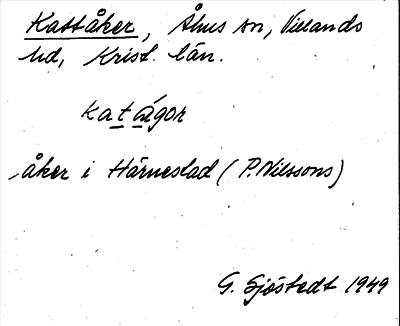 Kattåker, Åhus sn, Villands
hd, Krist. län.
katágor
åker i Härnestad (P. Nilssons)
G. Sjöstedt 1949